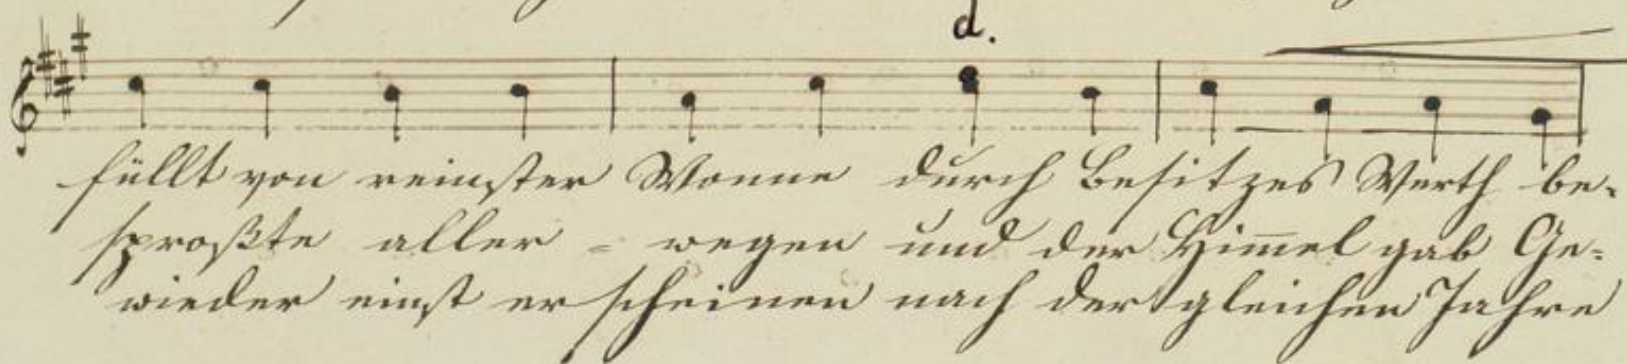 d.
füllt von reinster Wonne durch Besitzes Werth be-
sproßte aller - wegen und der Him̅el gab Ge-
wieder einst erscheinen nach der gleichen Jahre